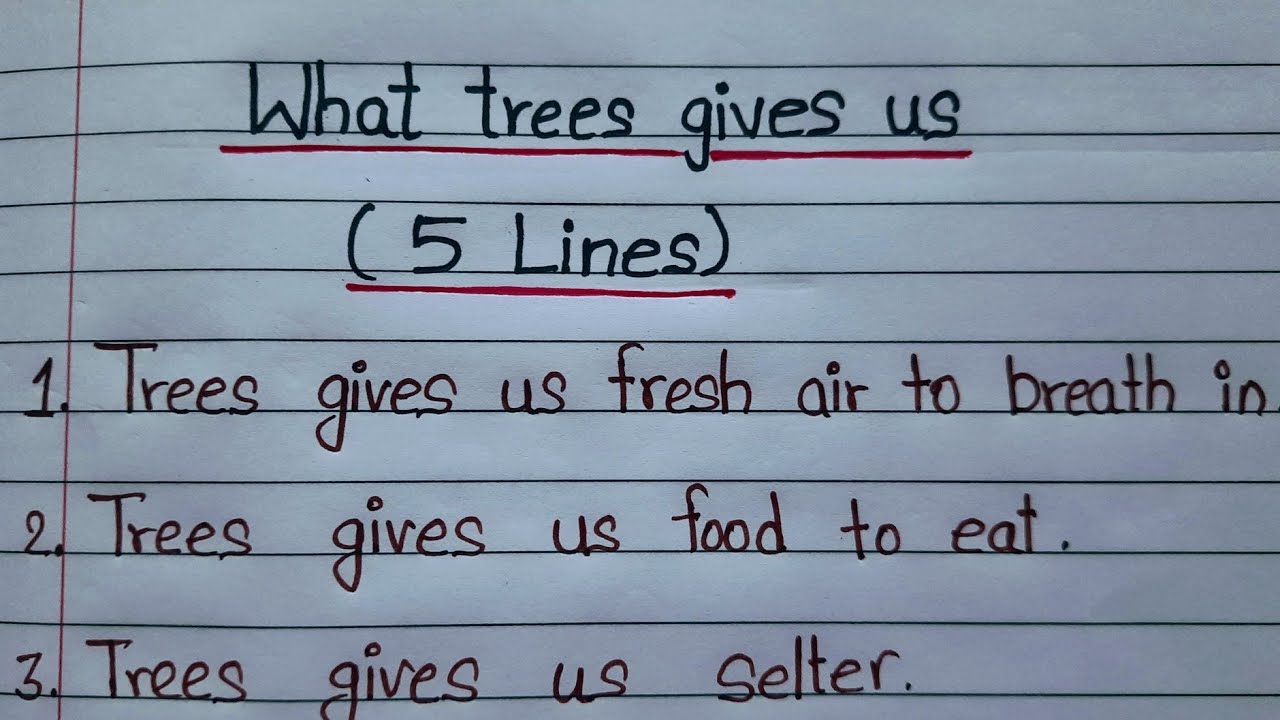 What trees gives us
( 5 Lines)
1. Trees gives us fresh air to breath in.
2. Trees gives us food to eat.
3. Trees gives us selter.